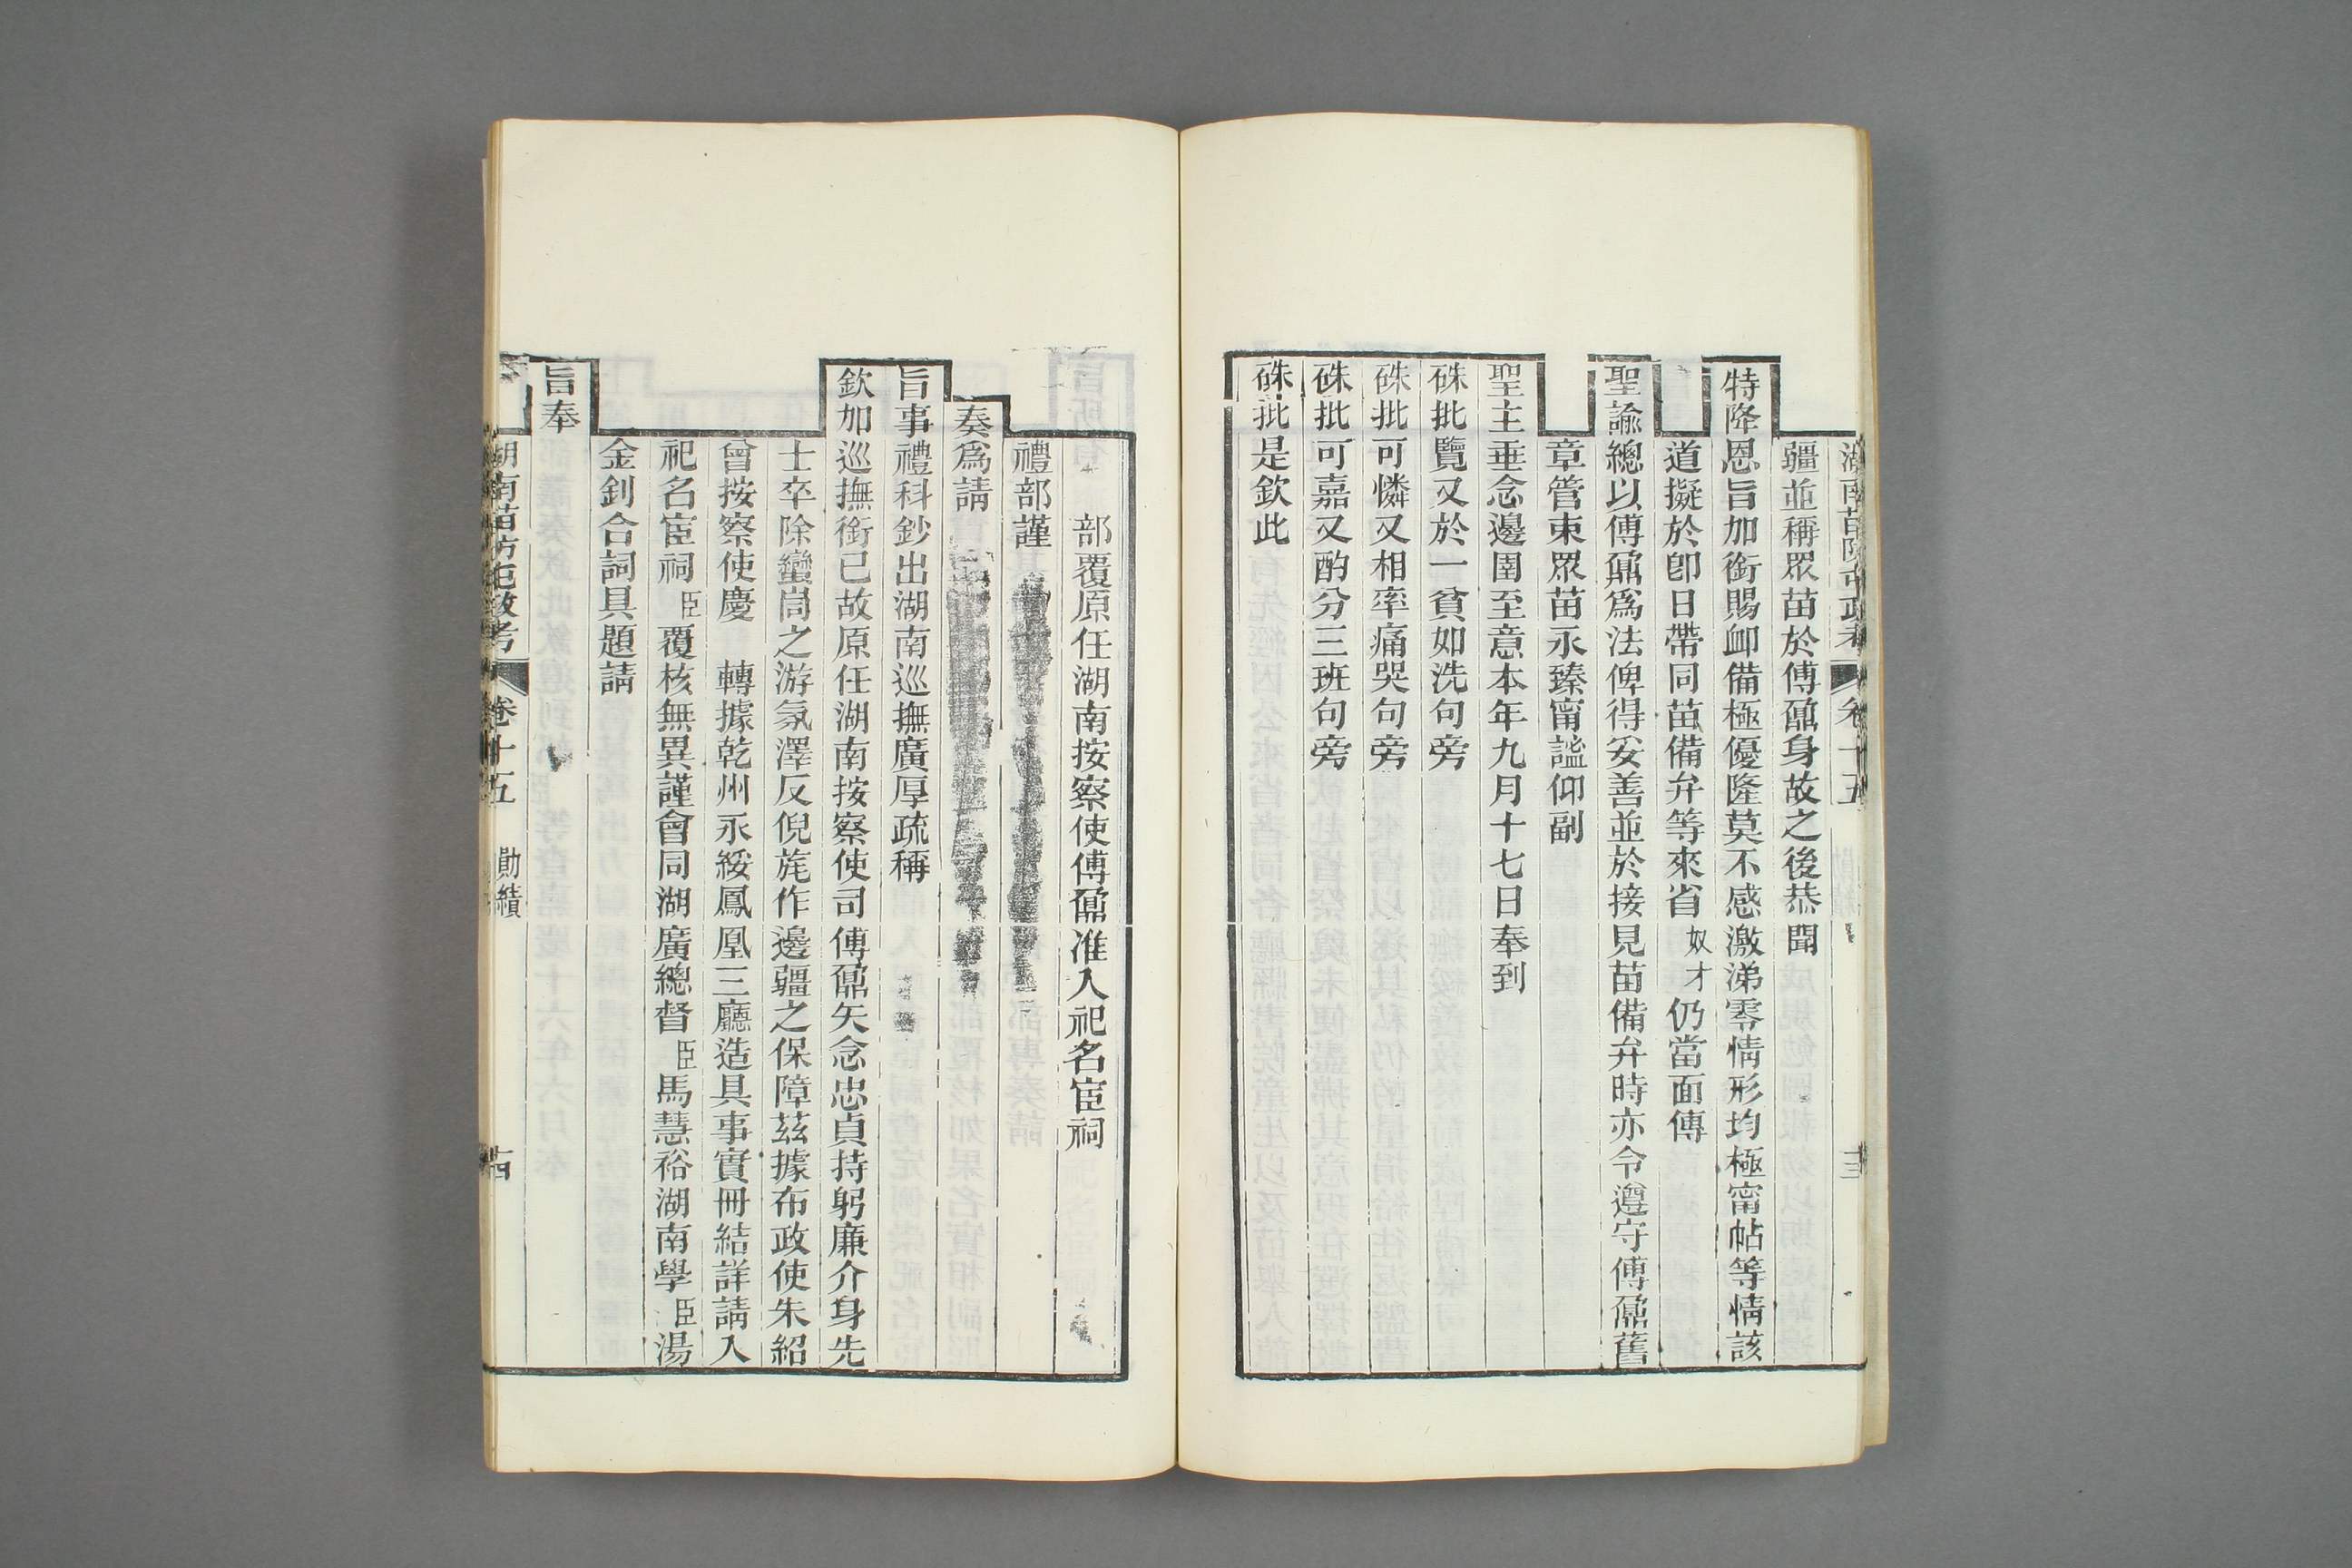 湖南苗防屯政考 卷十五 十三
疆並稱眾苗於傅鼐身故之後恭聞
特降恩旨加銜賜卹備極優隆莫不感激涕零情形均極甯帖等情該
道擬於卽日帶同苗備弁等來省奴才仍當面傳
聖諭總以傅鼐爲法俾得妥善並於接見苗備弁時亦令遵守傅鼐舊
章管束眾苗永臻甯謐仰副
聖主垂念邊圉至意本年九月十七日奉到
硃批覽又於一貧如洗句旁
硃批可憐又相率痛哭句旁
硃批可嘉又酌分三班句旁
硃批是欽此
部覆原任湖南按察使傅鼐准入祀名宦祠
禮部謹
奏爲請
旨事禮科鈔出湖南巡撫廣厚疏稱
欽加巡撫銜已故原任湖南按察使司傅鼐矢念忠貞持躬廉介身先
士卒除蠻峝之游氛澤反倪旄作邊疆之保障茲據布政使朱紹
曾按察使慶 轉據乾州永綏鳳凰三廳造具事實冊結詳請入
祀名宦祠臣覆核無異謹會同湖廣總督臣馬慧裕湖南學臣湯
金釗合詞具題請
旨奉
湖南苗防屯政考 卷十五 勛績 十四